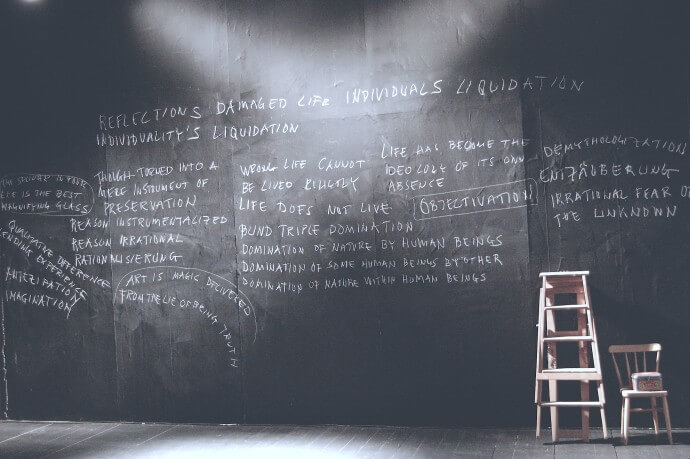 REFLECTIONS DAMAGED LIFE INDIVIDUALS LIQUIDATION
INDIVIDUALITY'S LIQUIDATION
THE SPLINTER IN YOUR
EYE IS THE BEST
MAGNIFYING GLASS
QUALITATIVE DIFFERENCE
EXPERIENCE
ANTEZIPATION
IMAGINATION
THOUGH TURNED INTO A
MERE INSTRUMENT OF
PRESERVATION
REASON INSTRUMENTALIZED
REASON IRRATIONAL
RATIONALISIERUNG
ART IS MAGIC DELIVERED
FROM THE LIE OF BEING TRUTH
WRONG LIFE CANNOT
BE LIVED RIGHTLY
LIFE DOES NOT LIVE
BLIND TRIPLE DOMINATION
DOMINATION OF NATURE BY HUMAN BEINGS
DOMINATION OF SOME HUMAN BEINGS BY OTHER
DOMINATION OF NATURE WITHIN HUMAN BEINGS
LIFE HAS BECOME THE
IDEOLOGY OF ITS OWN
ABSENCE
OBJECTIVATION
DEMYTHOLOGIZATION
ENTZÄUBERUNG
IRRATIONAL FEAR OF
THE UNKNOWN